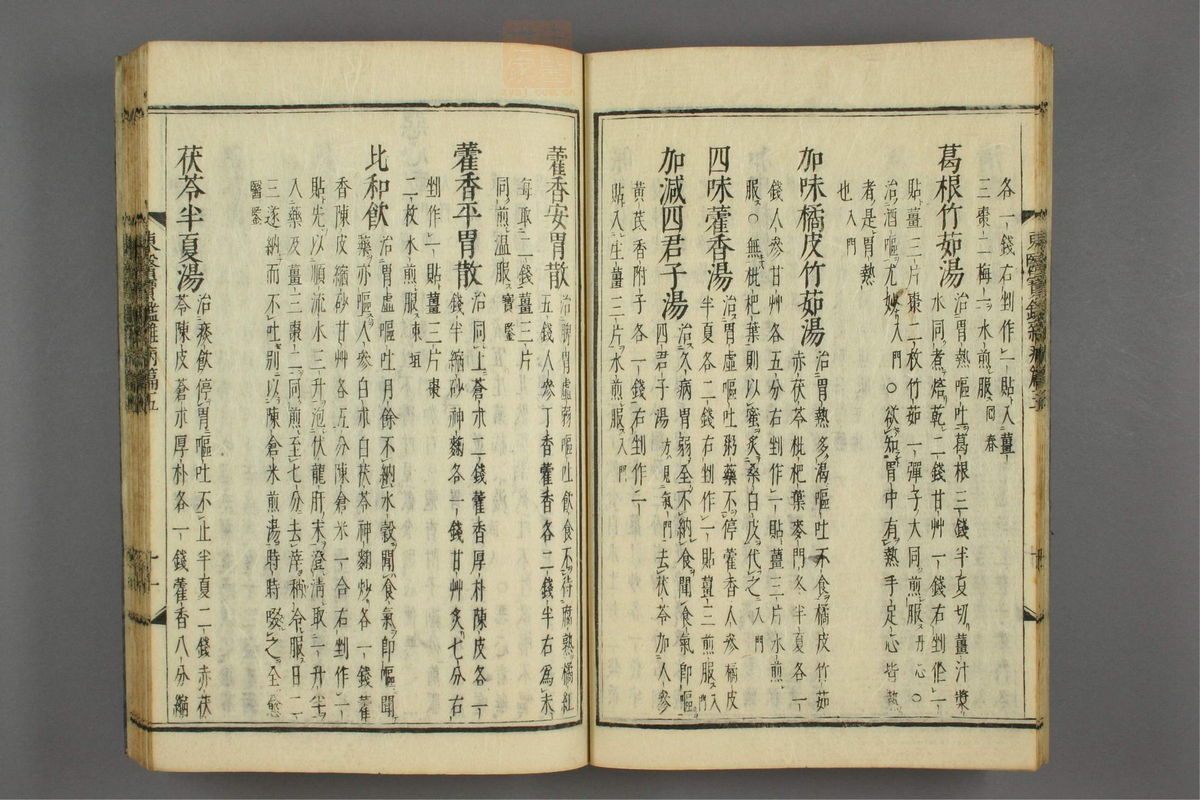 各一錢右剉作一貼入薑
三棗二梅一水煎服回春
葛根竹茹湯
治胃熱嘔吐葛根三錢半夏切薑汁漿
水同煮焙乾二錢甘艸一錢右剉作一
貼薑三片棗二枚竹茹一彈子大同煎服丹心○
治酒嘔尤妙入門○欲知胃中有熱手足心皆熱
者是胃熱
也入門
加味橘皮竹茹湯
治胃熱多渴嘔吐不食橘皮竹茹
赤茯苓枇杷葉麥門冬半夏各一
錢人參甘艸各五分右剉作一貼薑三片水煎
服○無枇杷葉則以蜜炙桑白皮代之入門
四味藿香湯
治胃虛嘔吐粥藥不停藿香人參橘皮
半夏各二錢右剉作一貼薑三煎服入門
加減四君子湯
治久病胃弱全不納食聞食氣卽嘔
四君子湯方見氣門去茯苓加人參
黃芪香附子各一錢右剉作一
貼入生薑三片水煎服入門
東醫寶鑑雜病篇五
藿香安胃散
治脾胃虛弱嘔吐飮食不待腐熟橘紅
五錢人參丁香藿香各二錢半右爲末
每取二錢薑三片
同煎溫服寶鑑
藿香平胃散
治同上蒼朮二錢藿香厚朴陳皮各一
錢半縮砂神麴各一錢甘艸炙七分右
剉作一貼薑三片棗
二枚水煎服東垣
比和飮
治胃虛嘔吐月餘不納水穀聞食氣卽嘔聞
藥亦嘔人參白朮白茯苓神麴炒各一錢藿
香陳皮縮砂甘艸各五分陳倉米一合右剉作一
貼先以順流水三升泡伏龍肝末澄淸取一升半
入藥及薑三棗二同煎至七分去滓稍冷服日二
三遂納而不吐別以陳倉米煎湯時時啜之全愈
醫鑒
茯苓半夏湯
治痰飮停胃嘔吐不止半夏二錢赤茯
苓陳皮蒼朮厚朴各一錢藿香八分縮
東醫寶鑑雜病篇五
十一